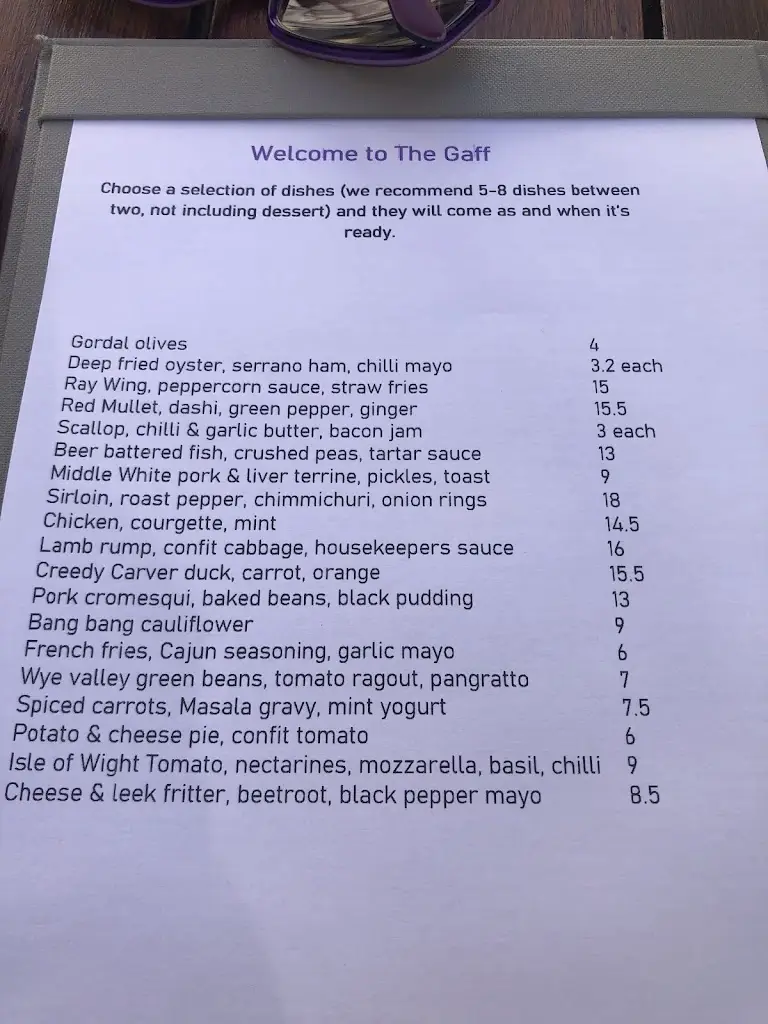 Welcome to The Gaff
Choose a selection of dishes (we recommend 5-8 dishes between
two, not including dessert) and they will come as and when it's
ready.
Gordal olives 4
Deep fried oyster, serrano ham, chilli mayo 3.2 each
Ray Wing, peppercorn sauce, straw fries 15
Red Mullet, dashi, green pepper, ginger 15.5
Scallop, chilli & garlic butter, bacon jam 3 each
Beer battered fish, crushed peas, tartar sauce 13
Middle White pork & liver terrine, pickles, toast 9
Sirloin, roast pepper, chimmichuri, onion rings 18
Chicken, courgette, mint 14.5
Lamb rump, confit cabbage, housekeepers sauce 16
Creedy Carver duck, carrot, orange 15.5
Pork cromesqui, baked beans, black pudding 13
Bang bang cauliflower 9
French fries, Cajun seasoning, garlic mayo 6
Wye valley green beans, tomato ragout, pangratto 7
Spiced carrots, Masala gravy, mint yogurt 7.5
Potato & cheese pie, confit tomato 6
Isle of Wight Tomato, nectarines, mozzarella, basil, chilli 9
Cheese & leek fritter, beetroot, black pepper mayo 8.5